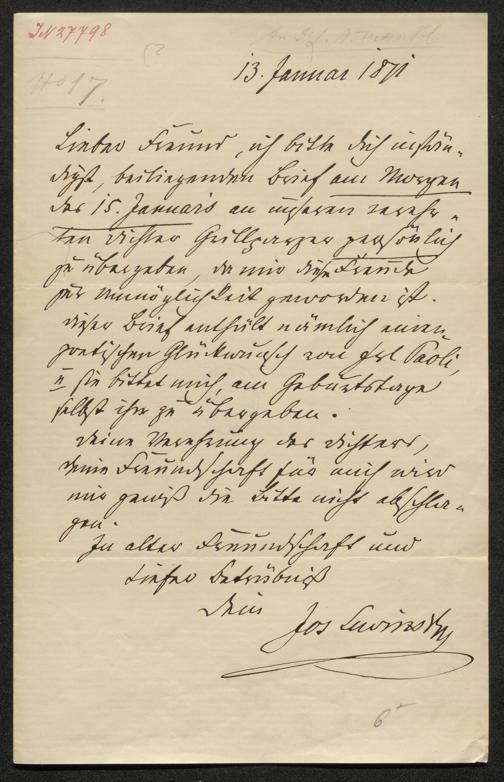 IN 27798
13. Januar 1871
Lieber Freund, ich bitte Dich instän-
digst, beiliegenden Brief am Morgen
des 15. Januars an unseren verehr-
ten Dichter Grillparzer persönlich
zu übergeben, da mir diese Freude
zur Unmöglichkeit geworden ist.
Dieser Brief enthält nämlich einen
poetischen Glückwunsch von Frl Paoli,
u sie bittet mich, am Geburtstage
selbst ihn zu übergeben.
Deine Verehrung des Dichters,
Deine Freundschaft für mich wird
mir gewiß die Bitte nicht abschla-
gen.
In alter Freundschaft und
tiefer Betrübniß
Dein
Jos Lewinsky